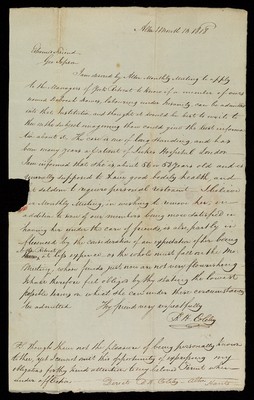 Alton 1 Month 18. 1818
Esteemed Friend
Geo Jepson
I am desired by Alton Monthly Meeting to apply
to the Managers of the Retreat to know if a member of ours
named Hannah now labouring under Insanity can be admitted
into that Institution and thought it would be best to write to
thee on the subject imagining thou could give the best information
about it. The case is one of long standing, she has
been many years a patient Lukes Hospital London
I am informed that she is about 56 or 57 years old and is
generally supposed to have good bodily health, and
but seldom to require personal restraint. I believe
our Monthly Meeting in wishing to remove her, in
addition to some of our members being more satisfied in
having her under the care of friends, are also partly in
fluenced by the consideration of an expectation of her being
there, at less expence, as the whole must fall on the Mo
Meeting, whose funds just now are not very flourishing
I shall therefore feel obliged by thy stating the lowest
possible terms on which she can under these circumstances
be admitted.
Thy friend very respectfully
Tho I have not the pleasure of being personally known
to thee, yet I cannot omit this opportunity of expressing my
obligation for thy kind attention to my beloved Aunt when
under affliction
Direct Alton Hants